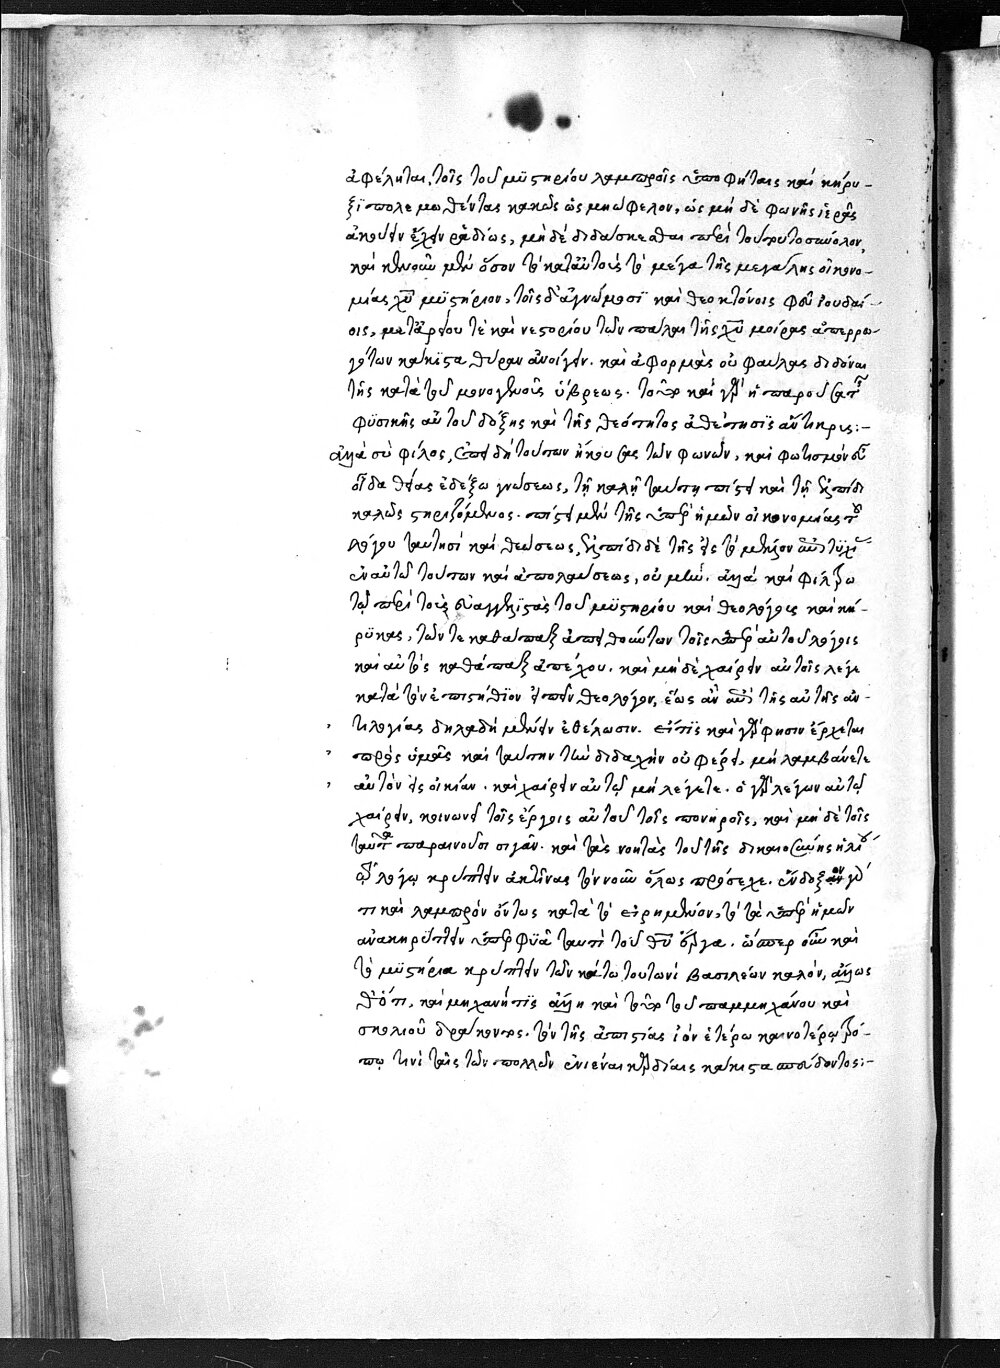 ἀφέληται, τοῖς τοῦ μϋστηρίου λαμπροῖς ὑποφήταις καὶ κήρυ-
ξι πολεμωθέντας κακῶς ὡς μὴ ὤφελον, ὡς μὴ δὲ φωνῆς ἱερᾶς
ἀκούειν ἔχειν ῥαδίως, μὴ δὲ διδάσκεσθαι περὶ τούτου τοσύολον,
καὶ κενοῦν μὲν ὅσον τὸ κατ' αὐτοὺς τὸ μέγα τῆς μεγάλης οἰκονο-
μίας χῦ μϋστήριον, τοῖς δ' ἀγνώμοσϊ καὶ θεοκτόνοις φεῦ ἰουδαί-
οις, μετ' ἀρείου τὲ καὶ νεστορίου τῶν πάλαι τῆς χῦ μοίρας ἀπερρω-
γότων κάκιστα θύραν ἀνοίγειν. καὶ ἀφορμὰς οὐ φαύλας διδόναι
τῆς κατὰ τοῦ μονογενοῦς ὕβρεως. τοῦτο καὶ γὰρ ἡ παροῦσα τῆς
φϋσικῆς αὐτοῦ δόξης καὶ τῆς θεότητος ἀθέτησϊς ἄντικρις:-
ἀλλὰ σὺ φίλος, ἐπειδὴ τούτων ἤκουσας τῶν φωνῶν, καὶ φωτισμὸν εὖ
οἶδα θείας ἐδέξω γνώσεως, τῇ καλῇ ταύτῃ πίστει καὶ τῇ ἐλπίδι
καλῶς στηριζόμενος. πίστει μὲν τῆς ὑπὲρ ἡμῶν οἰκονομίας τοῦ
λόγου ταυτησὶ καὶ θεώσεως, ἐλπίδι δὲ τῆς εἰς τὸ μέλλον
ἐν αὐτῷ τούτων καὶ ἀπολαύσεως, οὐ μὲν. ἀλλὰ καὶ φίλτρω
τῷ περὶ τοὺς εὐαγγελϊστὰς τοῦ μϋστηρίου καὶ θεολόγους καὶ κή-
ρϋκας, τῶν τε καθάπαξ ἀπειθούντων τοῖς ὑπὲρ αὐτοῦ λόγοις
καὶ αὐτὸς καθάπαξ ἀπέχου. καὶ μὴ δὲ χαίρειν αὐτοῖς λέγε
κατὰ τὸν ἐπιστήθϊον εἰπεῖν θεολόγον, ἕως ἂν ἐπὶ τῆς αὐτῆς ἀν-
τιλογίας δηλαδὴ μένειν ἐθέλωσιν. εἴ τϊς καὶ γὰρ φησιν ἔρχεται
πρὸς ὑμᾶς καὶ ταύτην τὴν διδαχὴν οὐ φέρει, μὴ λαμβάνετε
αὐτὸν εἰς οἰκίαν. καὶ χαίρειν αὐτῷ μὴ λέγετε. ὁ γὰρ λέγων αὐτῷ
χαίρειν, κοινωνεῖ τοῖς ἔργοις αὐτοῦ τοῖς πονηροῖς, καὶ μὴ δὲ τοῖς
ταῦτα παραινοῦσι σιγᾶν. καὶ τὰς νοητὰς τοῦ τῆς δικαιοσύνης ἡλίου
λόγω κρύπτειν ἀκτῖνας τὸν νοῦν ὅλως πρόσεχε. ἔνδοξον γάρ
τι καὶ λαμπρὸν ὄντως κατὰ τὸ εἰρημένον, τὸ τὰ ὑπὲρ ἡμῶν
ἀνακηρύττειν ὑπερφϋᾶ ταυτὶ τοῦ θῦ ἔργα. ὥσπερ οὖν καὶ
τὸ μϋστήρια κρύπτειν τῶν κάτω τουτωνὶ βασιλέων καλόν, ἄλλως
θ' ὅτι, καὶ μηχανή τϊς ἄλλη καὶ τοῦτο τοῦ παμμηχάνου καὶ
σκολιοῦ δράκοντος. τὸν τῆς ἀπιστίας ἰὸν ἑτέρω καινοτέρῳ τρό-
πῳ τινὶ ταῖς τῶν πολλῶν ἐνιέναι καρδίαις κάκιστα σπεύδοντος:-